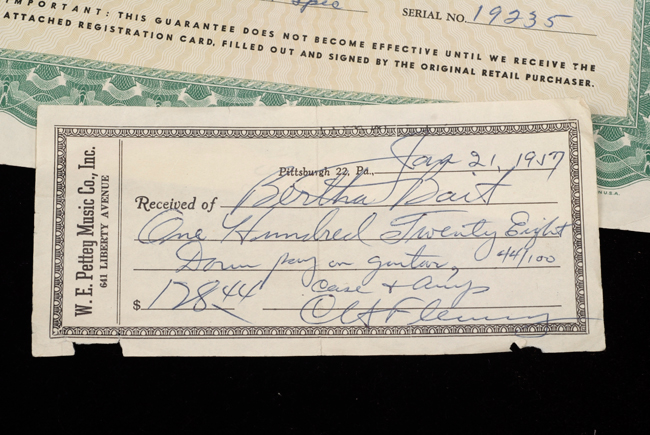 Spes
SERIAL NO. 19235
IMPORTANT: THIS GUARANTEE DOES NOT BECOME EFFECTIVE UNTIL WE RECEIVE THE
ATTACHED REGISTRATION CARD, FILLED OUT AND SIGNED BY THE ORIGINAL RETAIL PURCHASER.
W. E. Pettey Music Co., Inc.
641 LIBERTY AVENUE
Pittsburgh 22, Pa., Jan 21, 1957
Received of Bertha Bait
One Hundred Twenty Eight
Down pay on guitar, 44/100
$ 128.44 case & Amp
Fleming